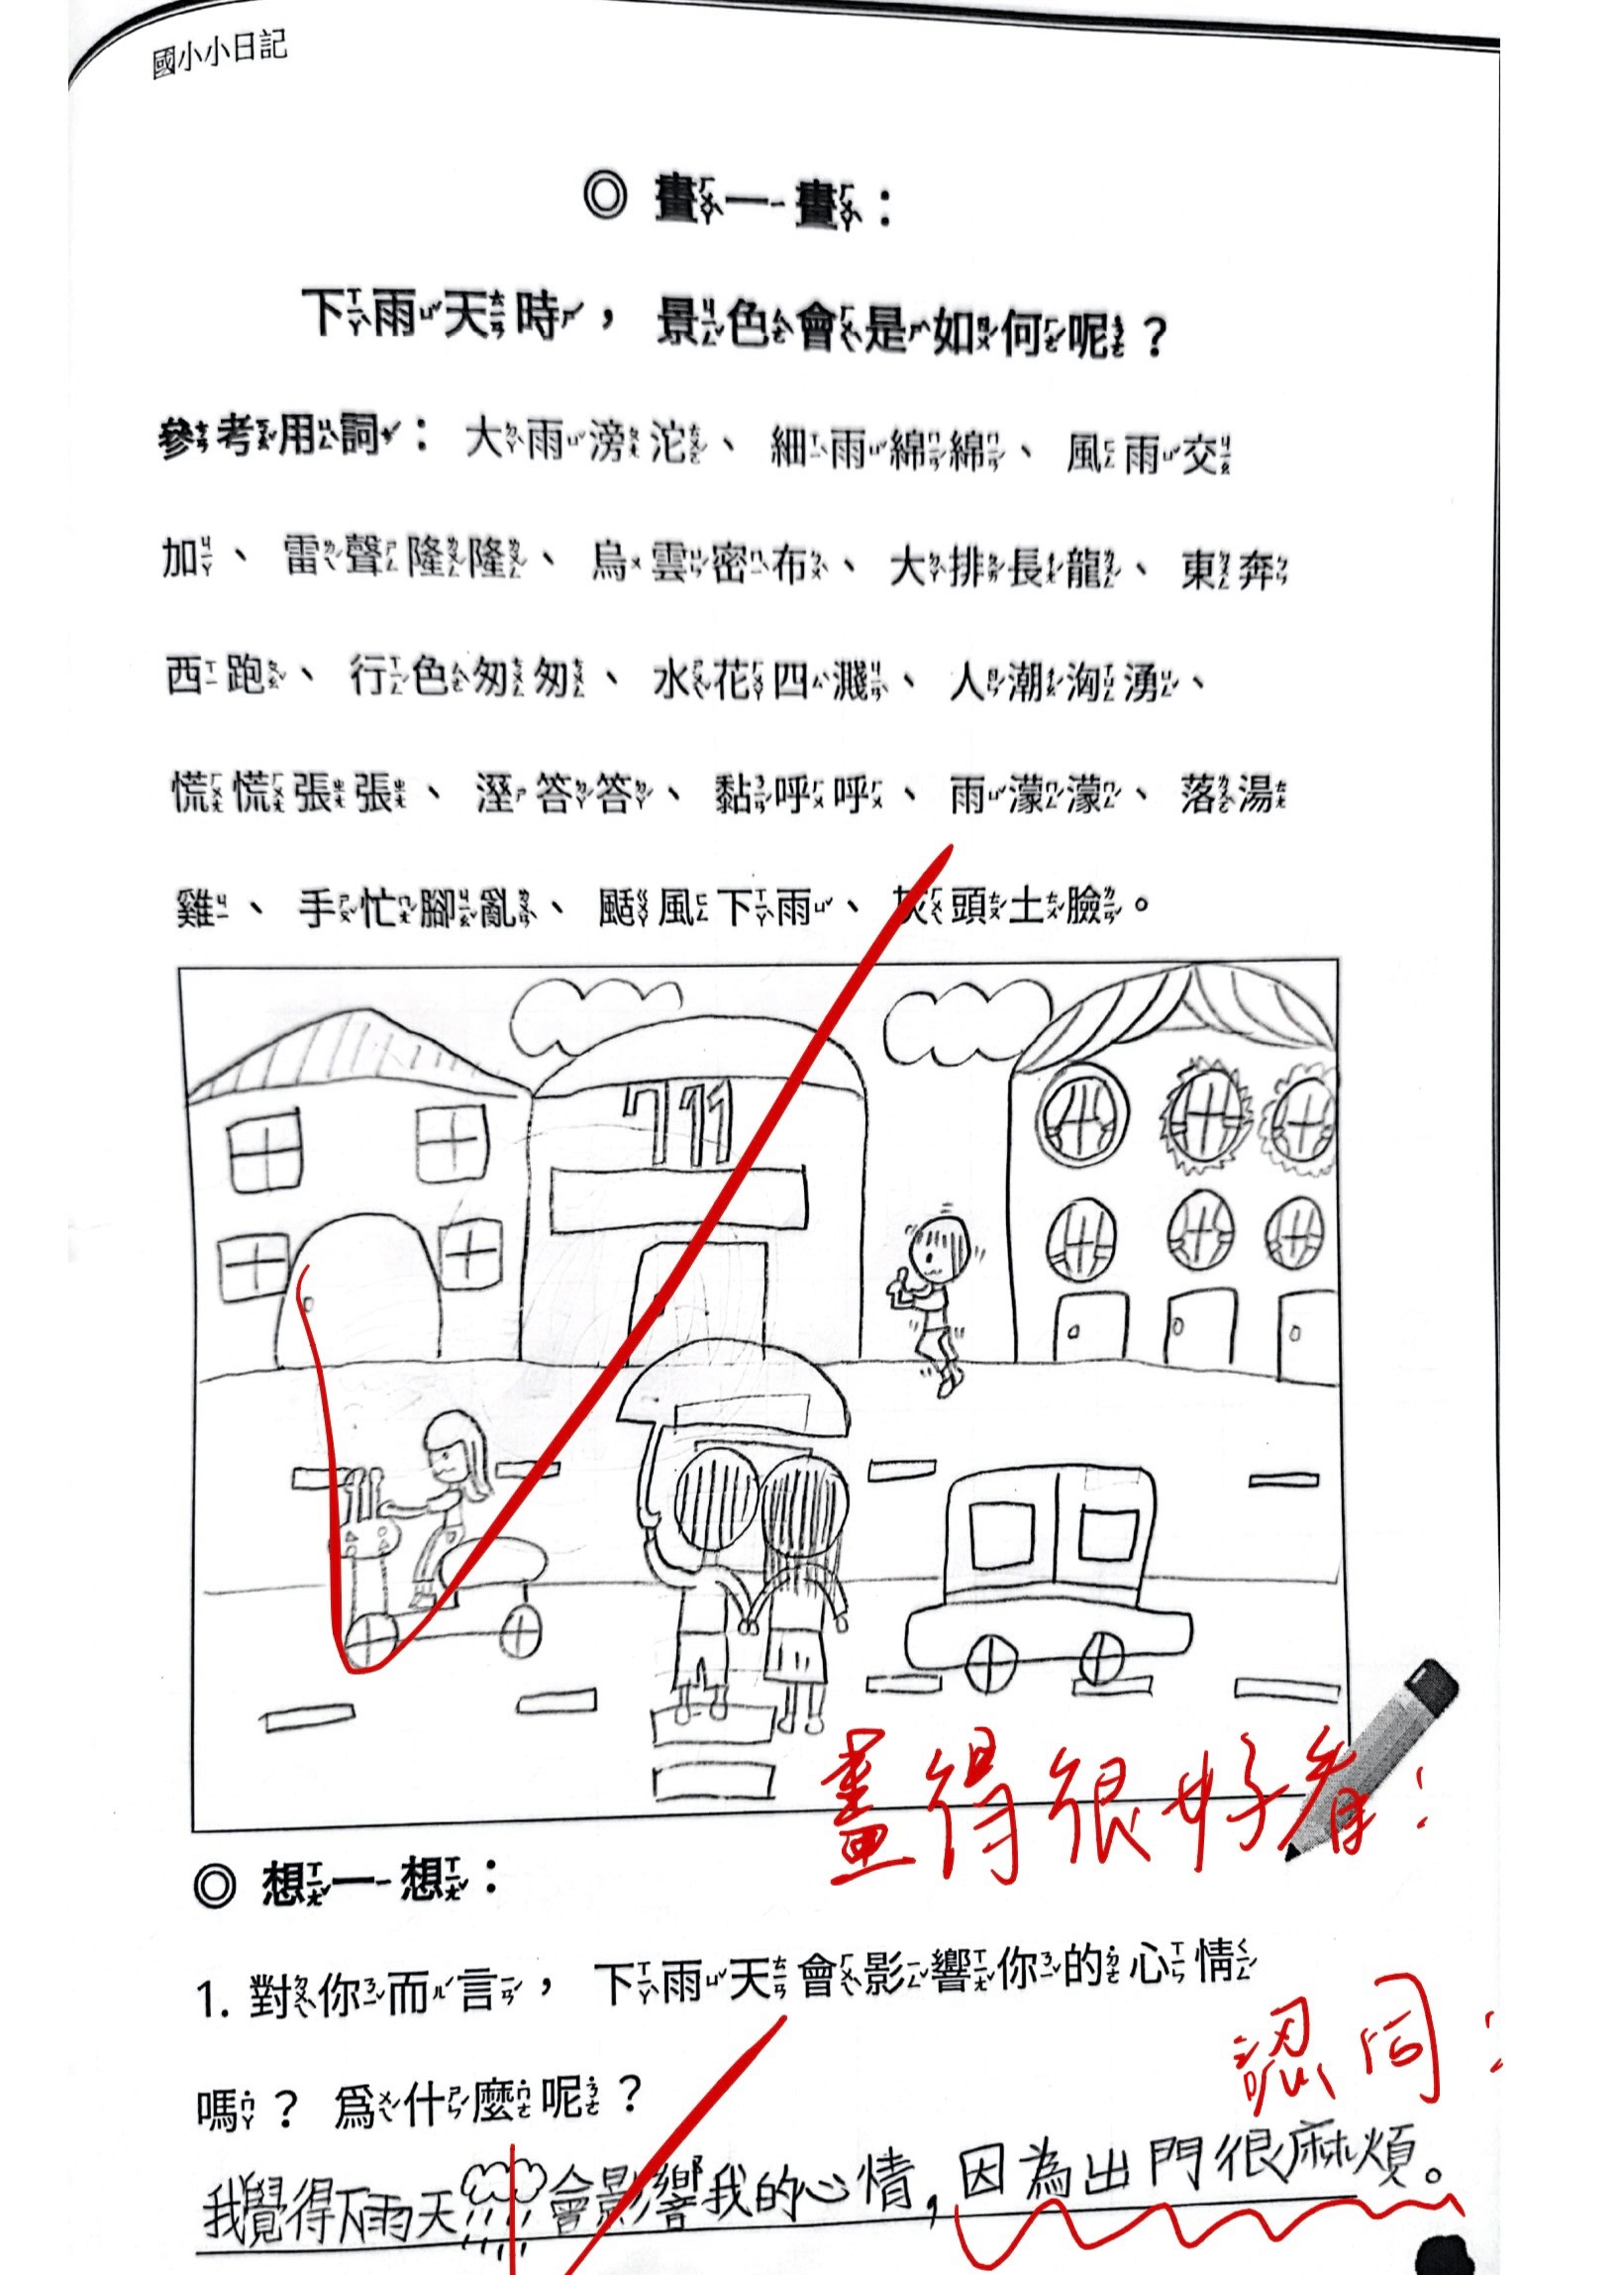 國小小日記
◎ 畫一畫：
下雨天時，景色會是如何呢？
參考用詞：大雨滂沱、細雨綿綿、風雨交
加、雷聲隆隆、烏雲密布、大排長龍、東奔
西跑、行色匆匆、水花四濺、人潮洶湧、
慌慌張張、溼答答、黏呼呼、雨濛濛、落湯
雞、手忙腳亂、颳風下雨、灰頭土臉。
711
畫得很好看!
◎ 想一想：
1. 對你而言，下雨天會影響你的心情
認同!
嗎？為什麼呢？
我覺得下雨天會影響我的心情，因為出門很麻煩。